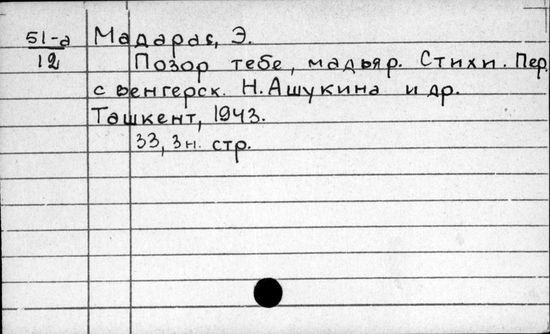 51-а
12
Мадарас, Э.
Позор тебе, мадьяр. Стихи. Пер.
с венгерск. Н.Ашукина и др.
Ташкент, 1943.
33, 3н. стр.